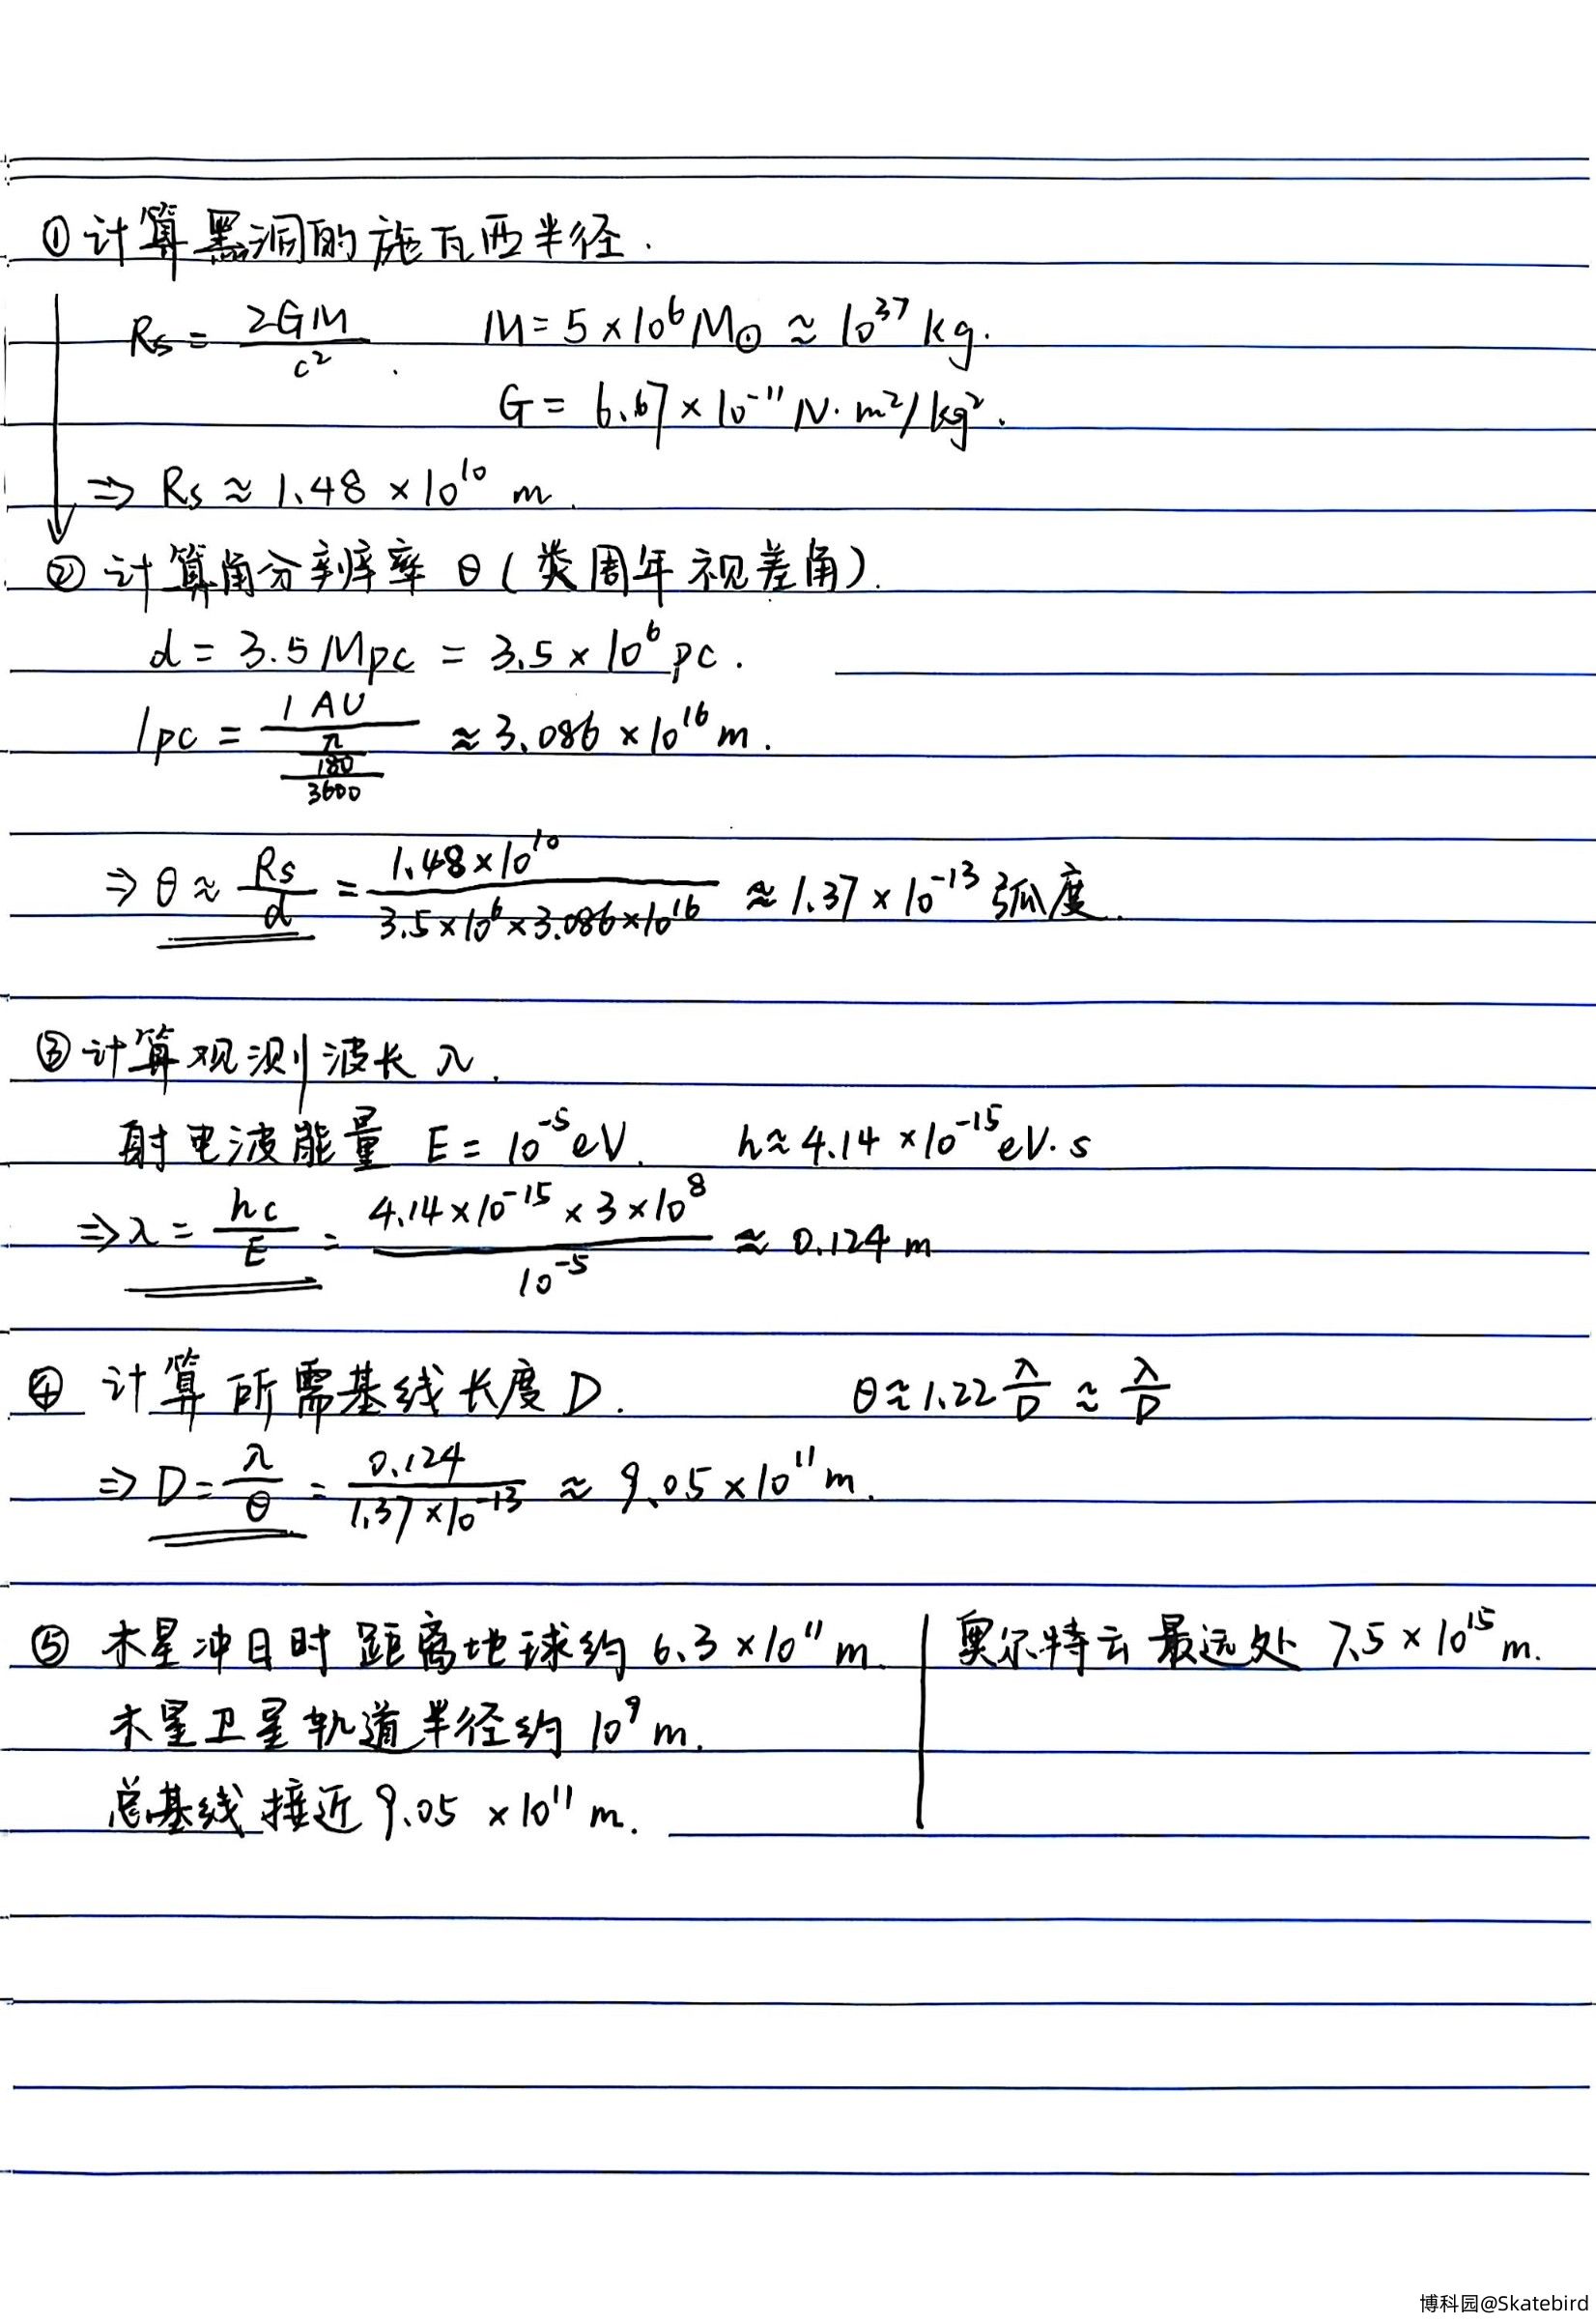 ① 计算黑洞的施瓦西半径.
Rs = 2GM/c². M = 5×10⁶M⊙ ≈ 10³⁷ kg.
G = 6.67×10⁻¹¹ N·m²/kg².
⇒ Rs ≈ 1.48×10¹⁰ m.
② 计算角分辨率 θ (类周年视差角).
d = 3.5 Mpc = 3.5×10⁶ pc.
1pc = 1AU/((π/180)/3600) ≈ 3.086×10¹⁶ m.
⇒ θ ≈ Rs/d = 1.48×10¹⁰/(3.5×10⁶×3.086×10¹⁶) ≈ 1.37×10⁻¹³ 弧度.
③ 计算观测波长 λ.
射电波能量 E = 10⁻⁵eV. h≈4.14×10⁻¹⁵eV·s
⇒ λ = hc/E = (4.14×10⁻¹⁵×3×10⁸)/10⁻⁵ ≈ 0.124 m
④ 计算所需基线长度 D. θ≈1.22 λ/D ≈ λ/D
⇒ D = λ/θ = 0.124/(1.37×10⁻¹³) ≈ 9.05×10¹¹ m.
⑤ 木星冲日时距离地球约 6.3×10¹¹ m. 奥尔特云最远处 7.5×10¹⁵ m.
木星卫星轨道半径约 10⁹ m.
总基线接近 9.05×10¹¹ m.
博科园@Skatebird